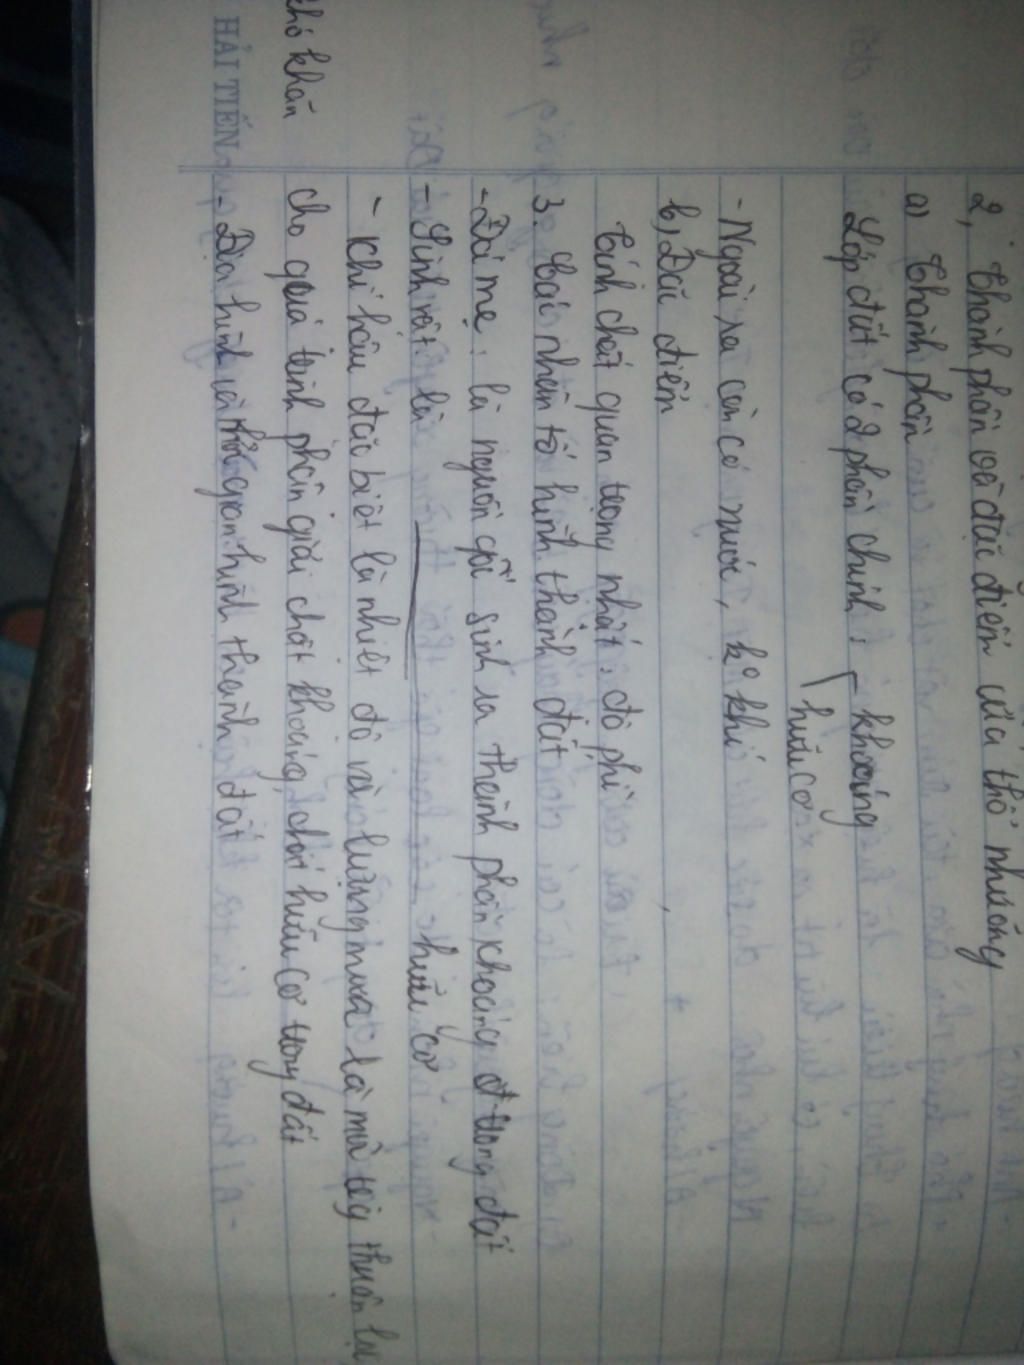 2, Thành phần và đặc điểm của thổ nhưỡng
a) Thành phần
Lớp đất có 2 phần chính: - khoáng
hữu cơ
- Ngoài ra còn có nước, kº khí
b, Đặc điểm
Tính chất quan trọng nhất: độ phì
3. Các nhân tố hình thành đất
- Đá mẹ: là nguồn gốc sinh ra thành phần khoáng trong đất
- Sinh vật: là hữu cơ
- Khí hậu đặc biệt là nhiệt độ và lượng mưa là môi trg thuận lợi
khó khăn
cho quá trình phân giải chất khoáng, chất hữu cơ trong đất
- Địa hình và thời gian hình thành đất
HẢI TIẾN